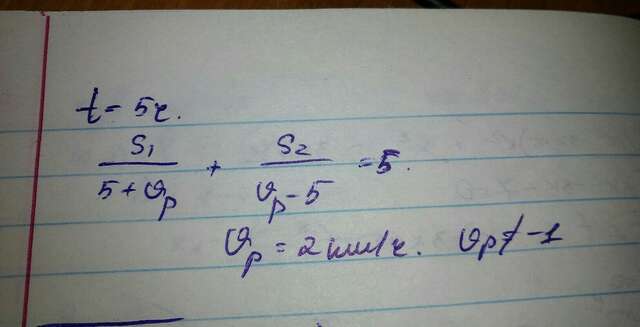 t = 5ч.
S₁/(5 + ϑₚ) + S₂/(ϑₚ - 5) = 5.
ϑₚ = 2 км/ч. ϑₚ ≠ -1